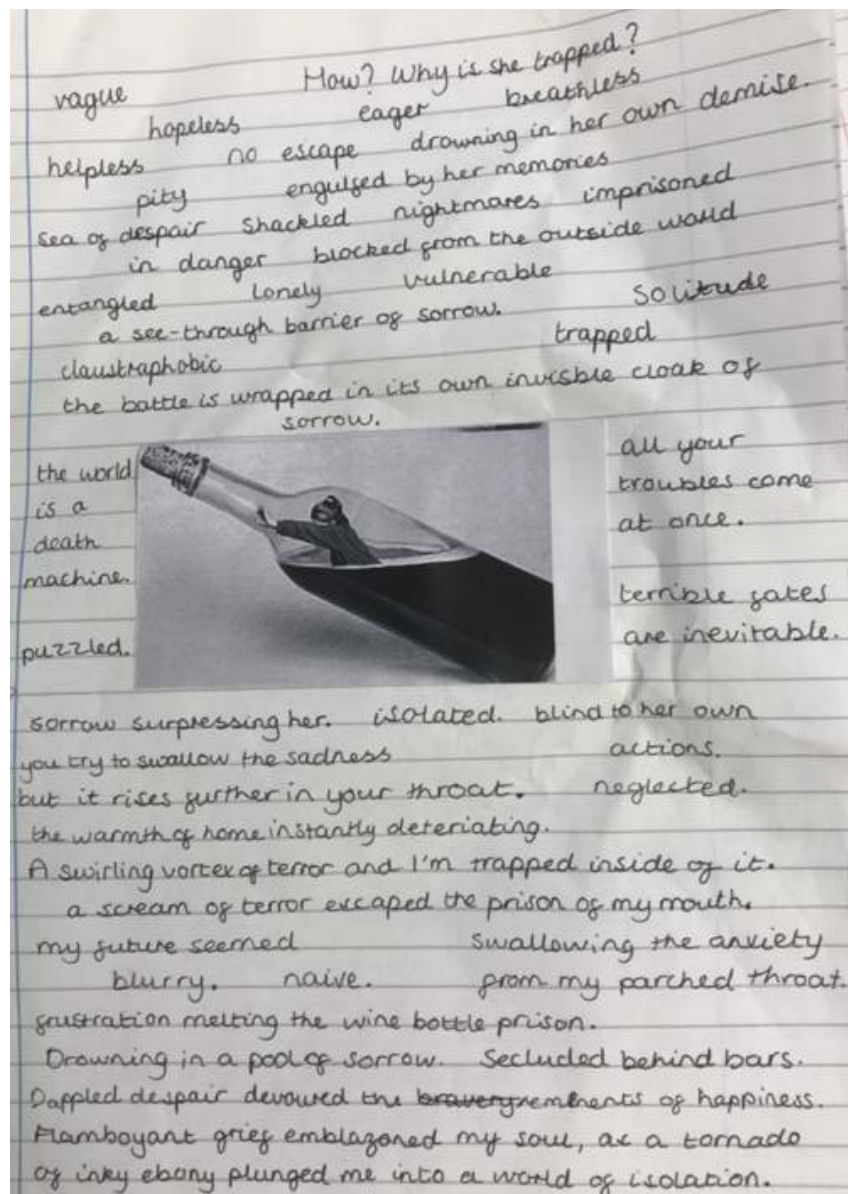 How? Why is she trapped?
vague
hopeless eager breathless
helpless no escape drowning in her own demise.
pity engulfed by her memories
sea of despair shackled nightmares imprisoned
in danger blocked from the outside world
entangled lonely vulnerable
a see-through barrier of sorrow. solitude
claustraphobic trapped
the battle is wrapped in its own invisble cloak of
sorrow.
the world
is a
death
machine.
puzzled.
all your
troubles come
at once.
terrible fates
are inevitable.
sorrow surpressing her. isolated. blind to her own
actions.
you try to swallow the sadness
but it rises further in your throat. neglected.
the warmth of home instantly deteriating.
A swirling vortex of terror and I'm trapped inside of it.
a scream of terror escaped the prison of my mouth.
my future seemed swallowing the anxiety
blurry. naive. from my parched throat.
frustration melting the wine bottle prison.
Drowning in a pool of sorrow. Secluded behind bars.
Dappled despair devoured the bravery of happiness.
Flamboyant grief emblazoned my soul, as a tornado
of inky ebony plunged me into a world of isolation.